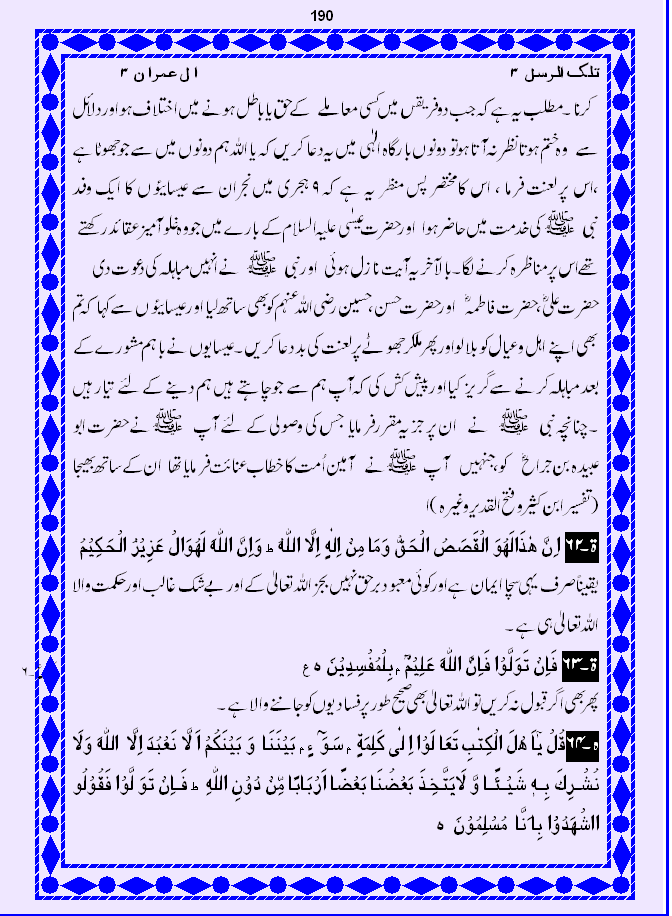 190
تلک الرسل ۳
ال عمران ۳
کرنا۔ مطلب یہ ہے کہ جب دو فریقس میں کسی معاملے کے حق یا باطل ہونے میں اختلاف ہو اور دلائل
سے وہ ختم ہوتا نظر نہ آتا ہو تو دونوں بارگاہ الٰہی میں یہ دعا کریں کہ یا اللہ ہم دونوں میں سے جو جھوٹا ہے
،اس پر لعنت فرما ، اس کا مختصر پس منظر یہ ہے کہ ۹ ہجری میں نجران سے عیسایئوں کا ایک وفد
نبی ﷺ کی خدمت میں حاضر ہوا اور حضرت عیسٰی علیہ السلام کے بارے میں جو وہ غلو آمیز عقائد رکھتے
تھے اس پر مناظرہ کرنے لگا۔ بالآخر یہ آیت نازل ہوئی اور نبی ﷺ نے انہیں مباہلہ کی دعوت دی
حضرت علیؓ، حضرت فاطمہؓ اور حضرت حسن، حسین رضی اللہ عنہم کو بھی ساتھ لیا اور عیسایئوں سے کہا کہ تم
بھی اپنے اہل و عیال کو بلا لو اور پھر ملکر جھوٹے پر لعنت کی بددعا کریں۔ عیسایوں نے باہم مشورے کے
بعد مباہلہ کرنے سے گریز کیا اور پیش کش کی کہ آپ ہم سے جو چاہتے ہیں ہم دینے کے لئے تیار ہیں
۔ چنانچہ نبی ﷺ نے ان پر جزیہ مقرر فرمایا جس کی وصولی کے لئے آپ ﷺ نے حضرت ابو
عبیدہ بن جراحؓ کو، جنہیں آپ ﷺ نے آمین اُمت کا خطاب عنائت فرمایا تھا ان کے ساتھ بھیجا
(تفسیر ابن کثیر و فتح القدیر وغیرہ)ا
ۃ۔۶۲ اِنَّ ھٰذَالَھُوَ الْقَصَصُ الْحَقُّ وَمَا مِنْ اِلٰہٍ اِلَّا اللّٰہُ ط وَاِنَّ اللّٰہَ لَھُوَالْ عَزِیْزُ الْحَکِیْمُ
یقیناً صرف یہی سچا ایمان ہے اور کوئی معبود برحق نہیں بجز اللہ تعالٰی کے اور بے شک غالب اور حکمت والا
اللہ تعالٰی ہی ہے۔
ۃ۔۶۳ فَاِنْ تَوَلَّوْا فَاِنَّ اللّٰہَ عَلِیْمٌ م بِلْمُفْسِدِیْنَ ہ ع
۔۶
پھر بھی اگر قبول نہ کریں تو اللہ تعالٰی بھی صحیح طور پر فسادیوں کو جاننے والا ہے۔
ہ۔۶۴ قُلْ یٰٓاَ ھْلَ الْکِتٰبِ تَعَا لَوْا اِ لٰی کَلِمَۃٍ م سَوَآ ءٍ م بَیْنَنَا وَ بَیْنَکُمْ اَلَّا نَعْبُدَ اِلَّا اللّٰہَ وَلَا
نُشْرِکَ بِہٖ شَیْئًا وَّ لَایَتَّخِذَ بَعْضُنَا بَعْضًا اَرْبَابًا مِّنْ دُوْنِ اللّٰہِ ط فَاِنْ تَوَ لَّوْا فَقُوْلُو
ااشْھَدُوْا بِاَنَّا مُسْلِمُوْنَ ہ